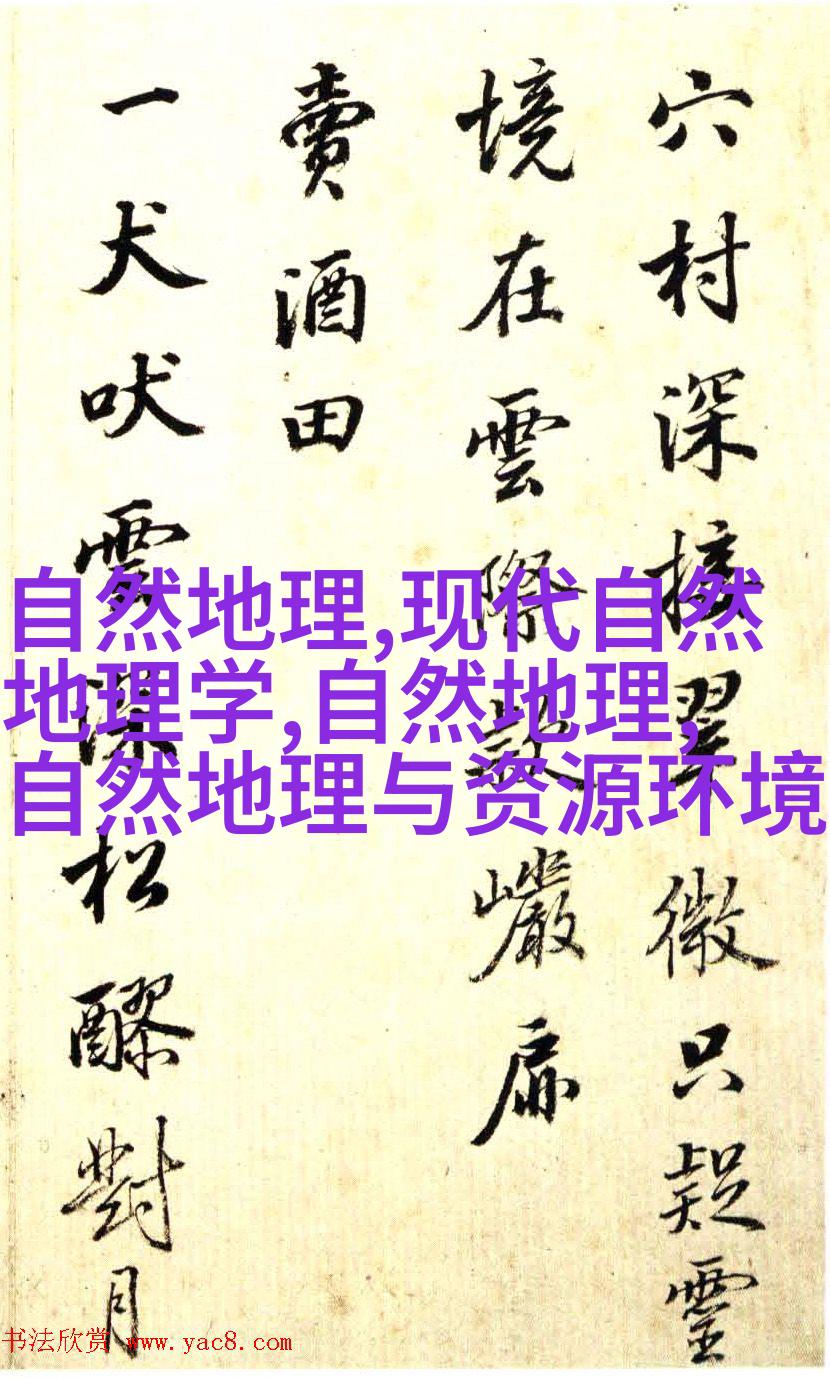 穴村深接翠微只疑靈
境在雲際設巖扉
賣酒田
一犬吠雲深松醪對月
自然地理,现代自然
地理学,自然地理,
自然地理与资源环境
书法欣赏 www.yac8.com